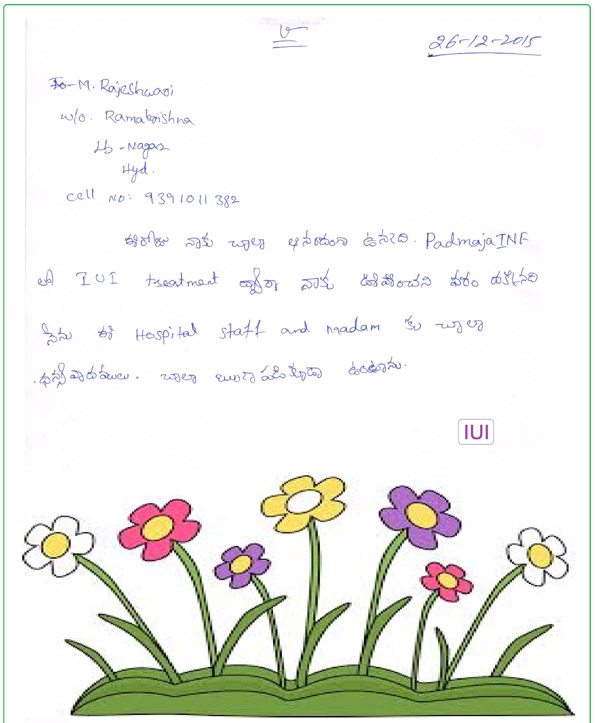 26-12-2015
To- M. Rajeshwari
w/o. Ramakrishna
Lb-Nagar
Hyd.
cell no: 9391011382
ఈరోజు నాకు చాలా ఆనందంగా ఉన్నది. Padmaja INF
లో IUI treatment ద్వారా నాకు ఊహించని వరం దక్కినది
నేను ఈ Hospital staff and madam కు చాలా
ధన్యవాదములు. చాలా ఋణపడి కూడా ఉంటాను.
IUI